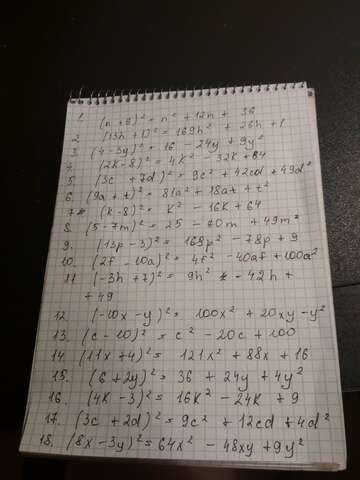 1. (n + 6)² = n² + 12n + 36
2. (13h + 1)² = 169h² + 26h + 1
3. (4 - 3y)² = 16 - 24y + 9y²
4. (2k - 8)² = 4k² - 32k + 64
5. (3c + 7d)² = 9c² + 42cd + 49d²
6. (9a + t)² = 81a² + 18at + t²
7. (k - 8)² = k² - 16k + 64
8. (5 - 7m)² = 25 - 70m + 49m²
9. (13p - 3)² = 168p² - 78p + 9
10. (2f - 10a)² = 4f² - 40af + 100a²
11 (-3h + 7)² = 9h² - 42h +
+ 49
12. (-10x - y)² = 100x² + 20xy - y²
13. (c - 10)² = c² - 20c + 100
14 (11x + 4)² = 121x² + 88x + 16
15. (6 + 2y)² = 36 + 24y + 4y²
16. (4k - 3)² = 16k² - 24k + 9
17. (3c + 2d)² = 9c² + 12cd + 4d²
18. (8x - 3y)² = 64x² - 48xy + 9y²